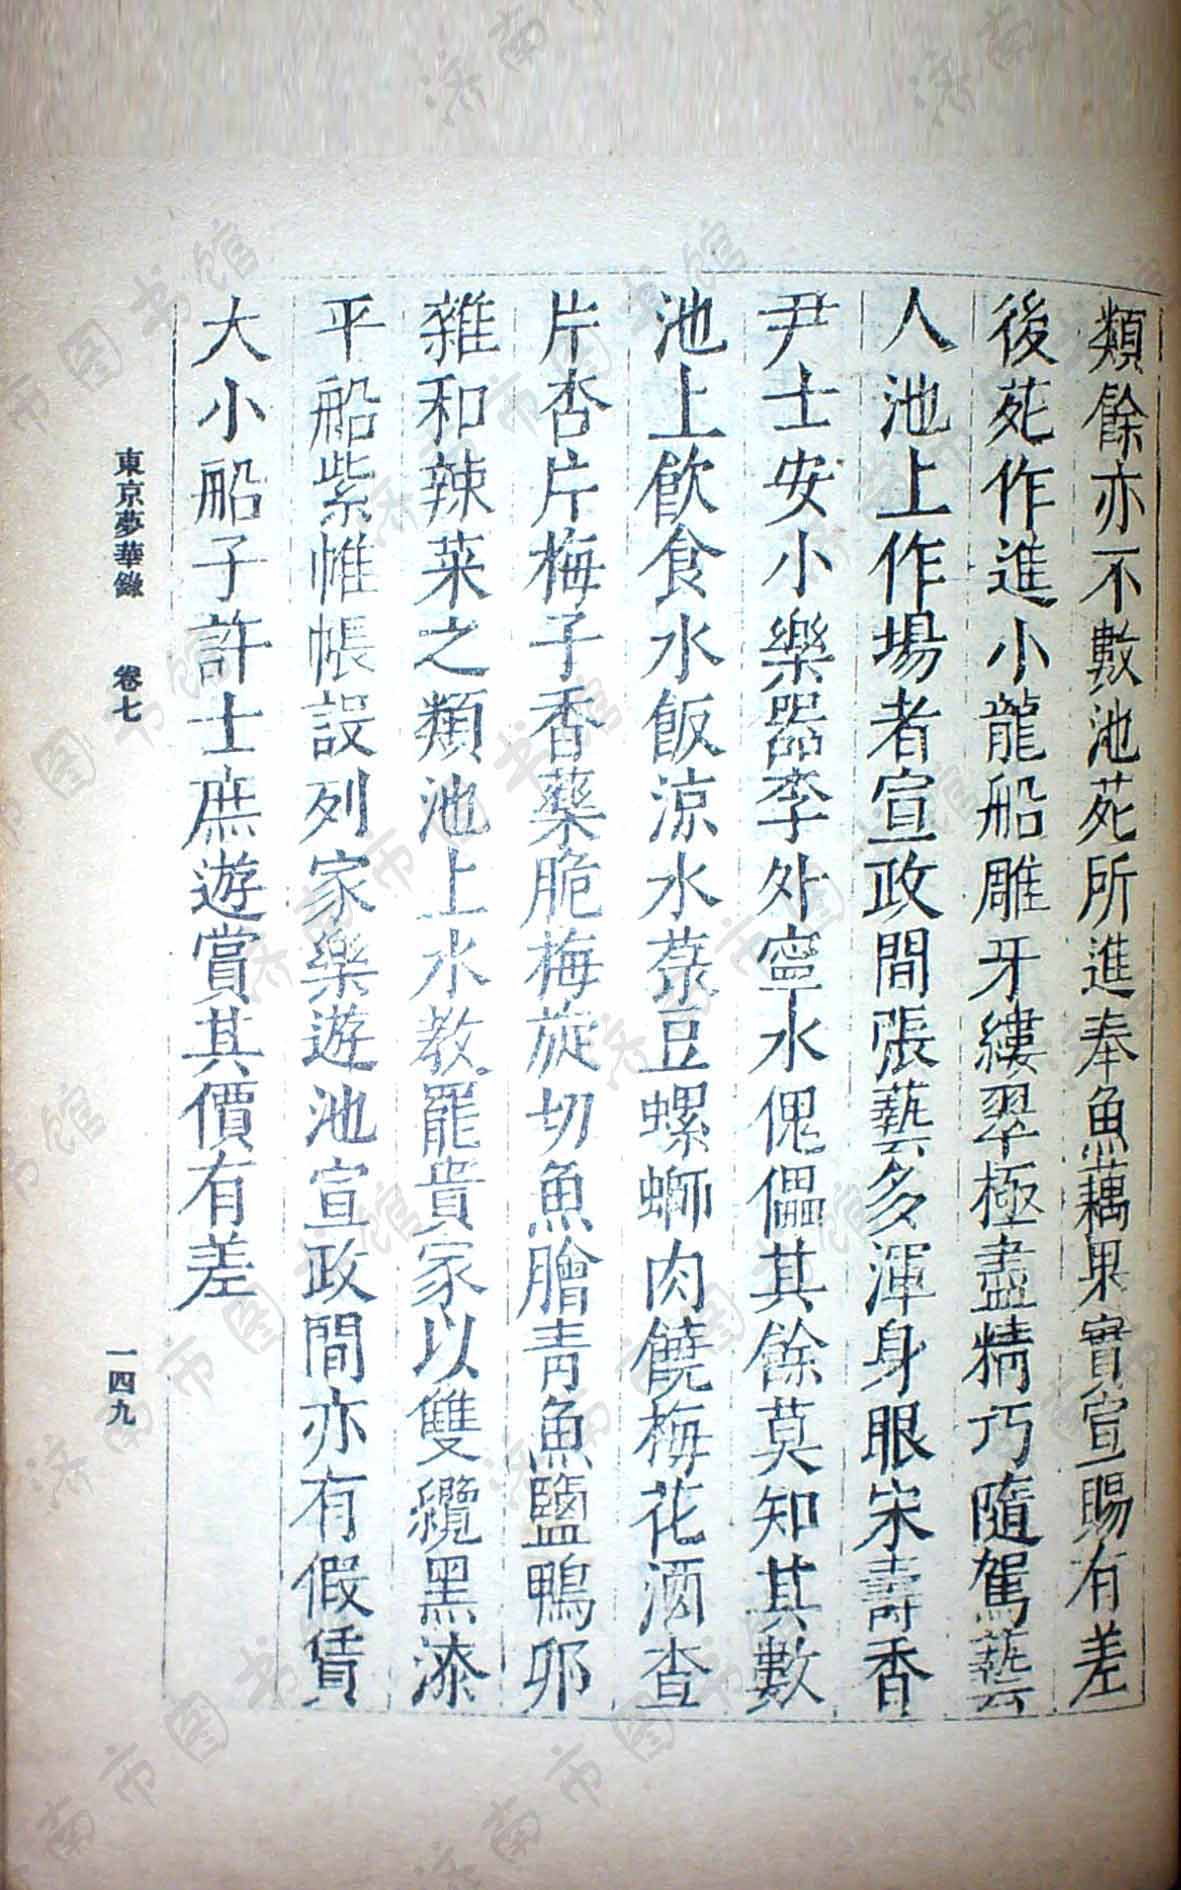 類餘亦不敷池苑所進奉魚藕果實宣賜有差
後苑作進小龍船雕牙縷翠極盡精巧隨駕藝
人池上作場者宣政間張藝多渾身眼宋壽香
尹士安小樂器李外寧水傀儡其餘莫知其數
池上飲食水飯涼水菉豆螺螄肉饒梅花酒查
片杏片梅子香藥脆梅旋切魚膾青魚鹽鴨卵
雜和辣菜之類池上水教罷貴家以雙纜黑漆
平船紫帷帳設列家樂遊池宣政間亦有假賃
大小船子許士庶遊賞其價有差
東京夢華錄 卷七
一四九
济南市图书馆